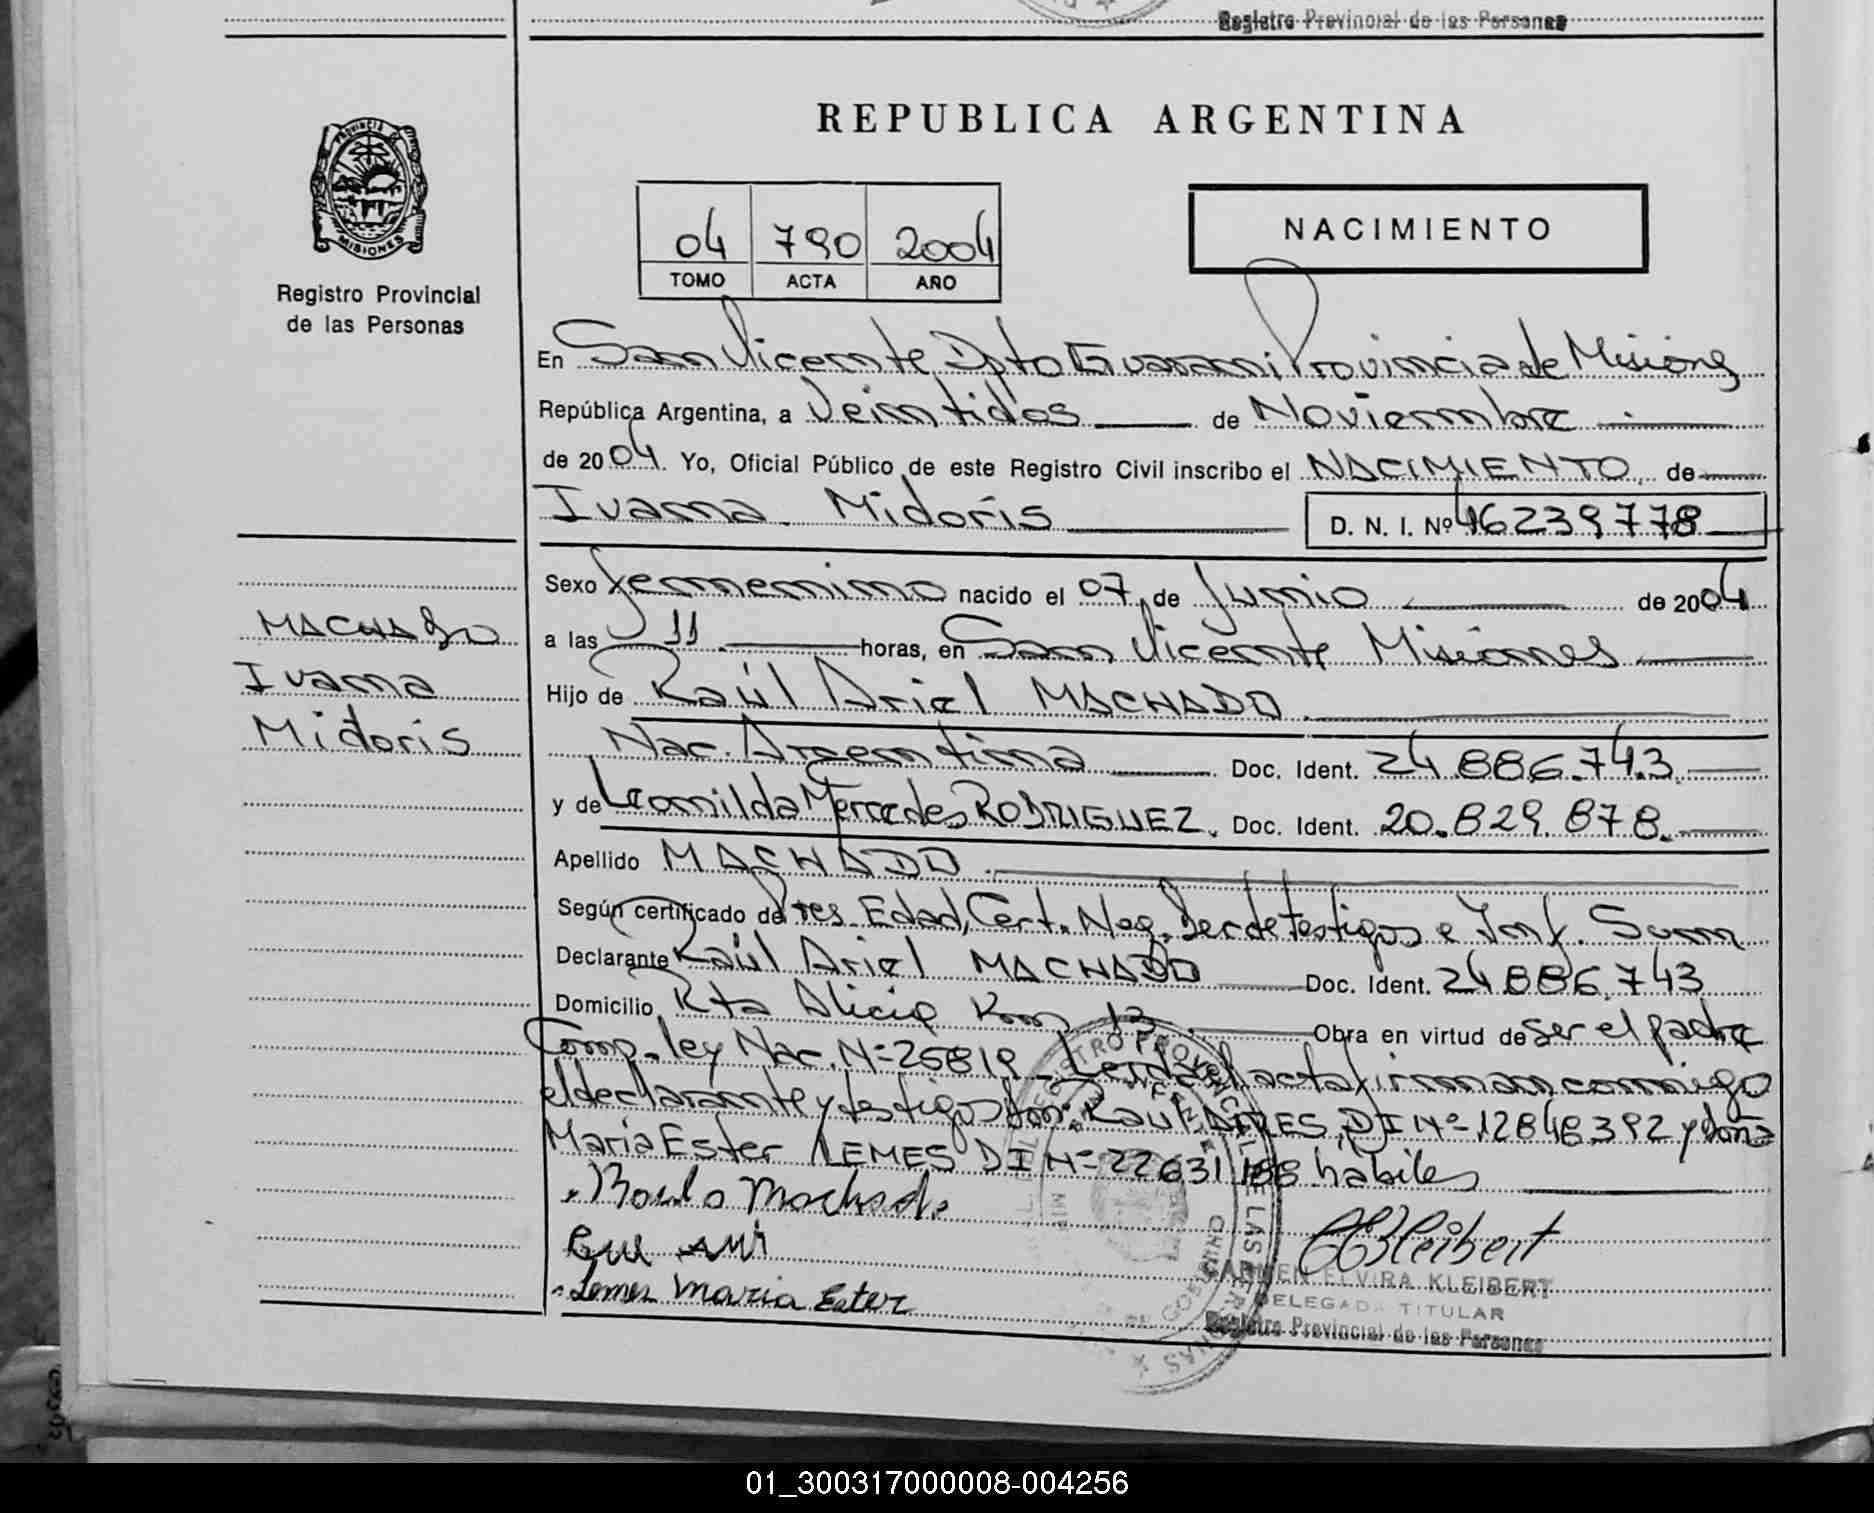 Registro Provincial de las Personas
REPUBLICA ARGENTINA
PROVINCIA DE
MISIONES
Registro Provincial
de las Personas
04 790 2004
TOMO ACTA AÑO
NACIMIENTO
En San Vicente Dpto Guarani Provincia de Misiones
República Argentina, a Veintidos de Noviembre
de 2004. Yo, Oficial Público de este Registro Civil inscribo el NACIMIENTO de
Ivana Midoris D. N. I. Nº 46239778
Sexo femenino nacido el 07 de Junio de 2004
a las 11 horas, en San Vicente Misiones
Hijo de Raúl Ariel MACHADO
Nac. Argentina Doc. Ident. 24.886.743
y de Leonilda Mercedes RODRIGUEZ. Doc. Ident. 20.829.878.
Apellido MACHADO
Según certificado de Pres. Edad, Cert. Neg. Der de Testigos e Inf. Sum
Declarante Raúl Ariel MACHADO Doc. Ident. 24.886.743
Domicilio Rta Alicia Km 13 Obra en virtud de ser el padre
Comp. ley Nac. Nº 25819 Leida el acta firman conmigo
el declarante y testigos don: Raul AIRES, DI Nº 12848392 y doña
Maria Ester LEMES DI Nº 22631188 habiles
MACHADO
Ivana
Midoris
Lemes Maria Ester
CARMEN ELVIRA KLEIBERT
DELEGADA TITULAR
Registro Provincial de las Personas
01_300317000008-004256